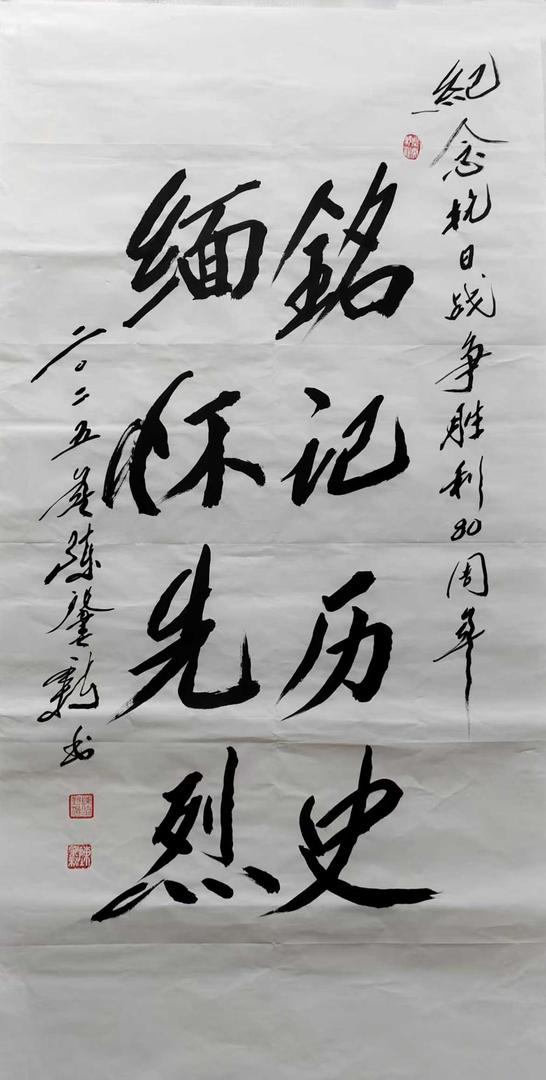 纪念抗日战争胜利80周年
銘记历史
缅怀先烈
二〇二五年陈肇勲书